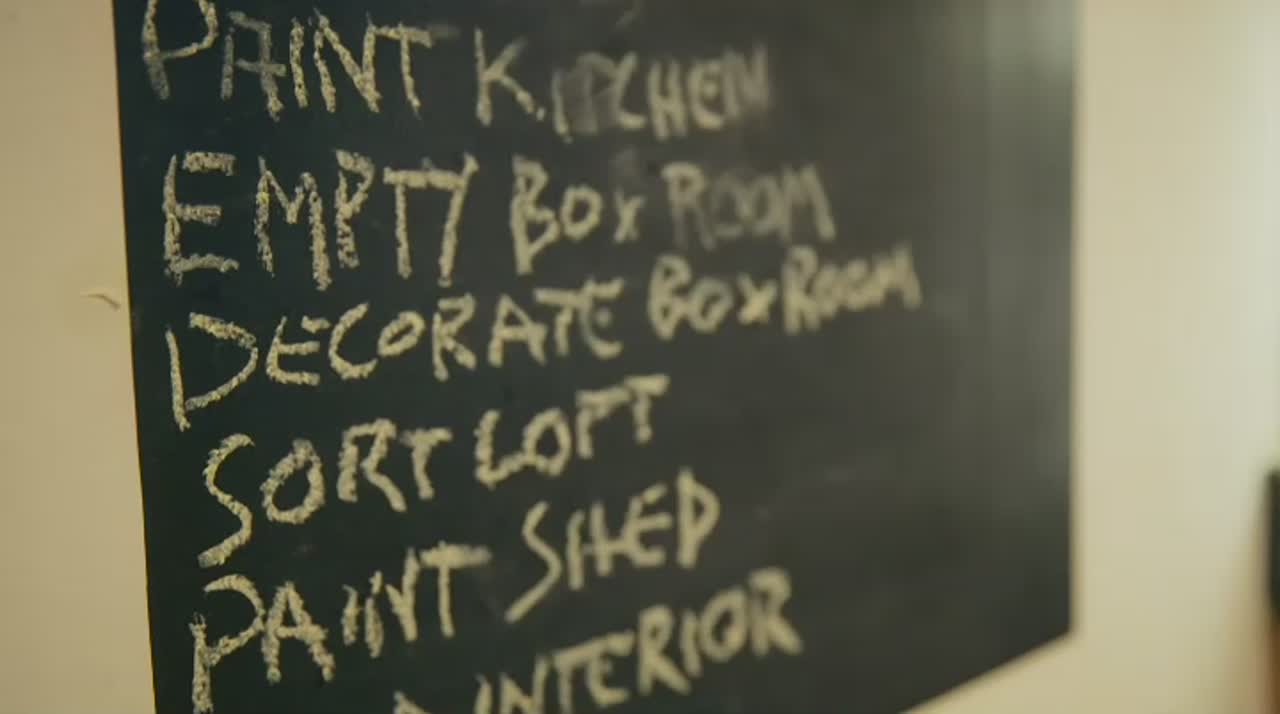 PAINT KITCHEN
EMPTY BOX ROOM
DECORATE BOX ROOM
SORT LOFT
PAINT SHED
INTERIOR